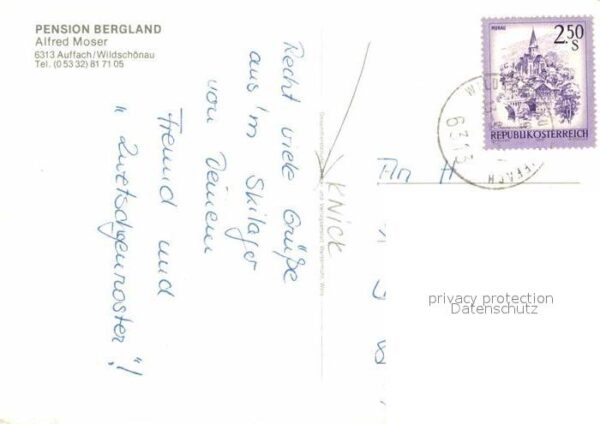 PENSION BERGLAND
Alfred Moser
6313 Auffach/Wildschönau
Tel. (0 53 32) 81 71 05
Recht viele Grüße
aus'm Skilager
von Deinem
Freund und
"Zwetschgenröster"!
KNICK
An H
MURAU
2.50
S
REPUBLIK ÖSTERREICH
6313
privacy protection
Datenschutz